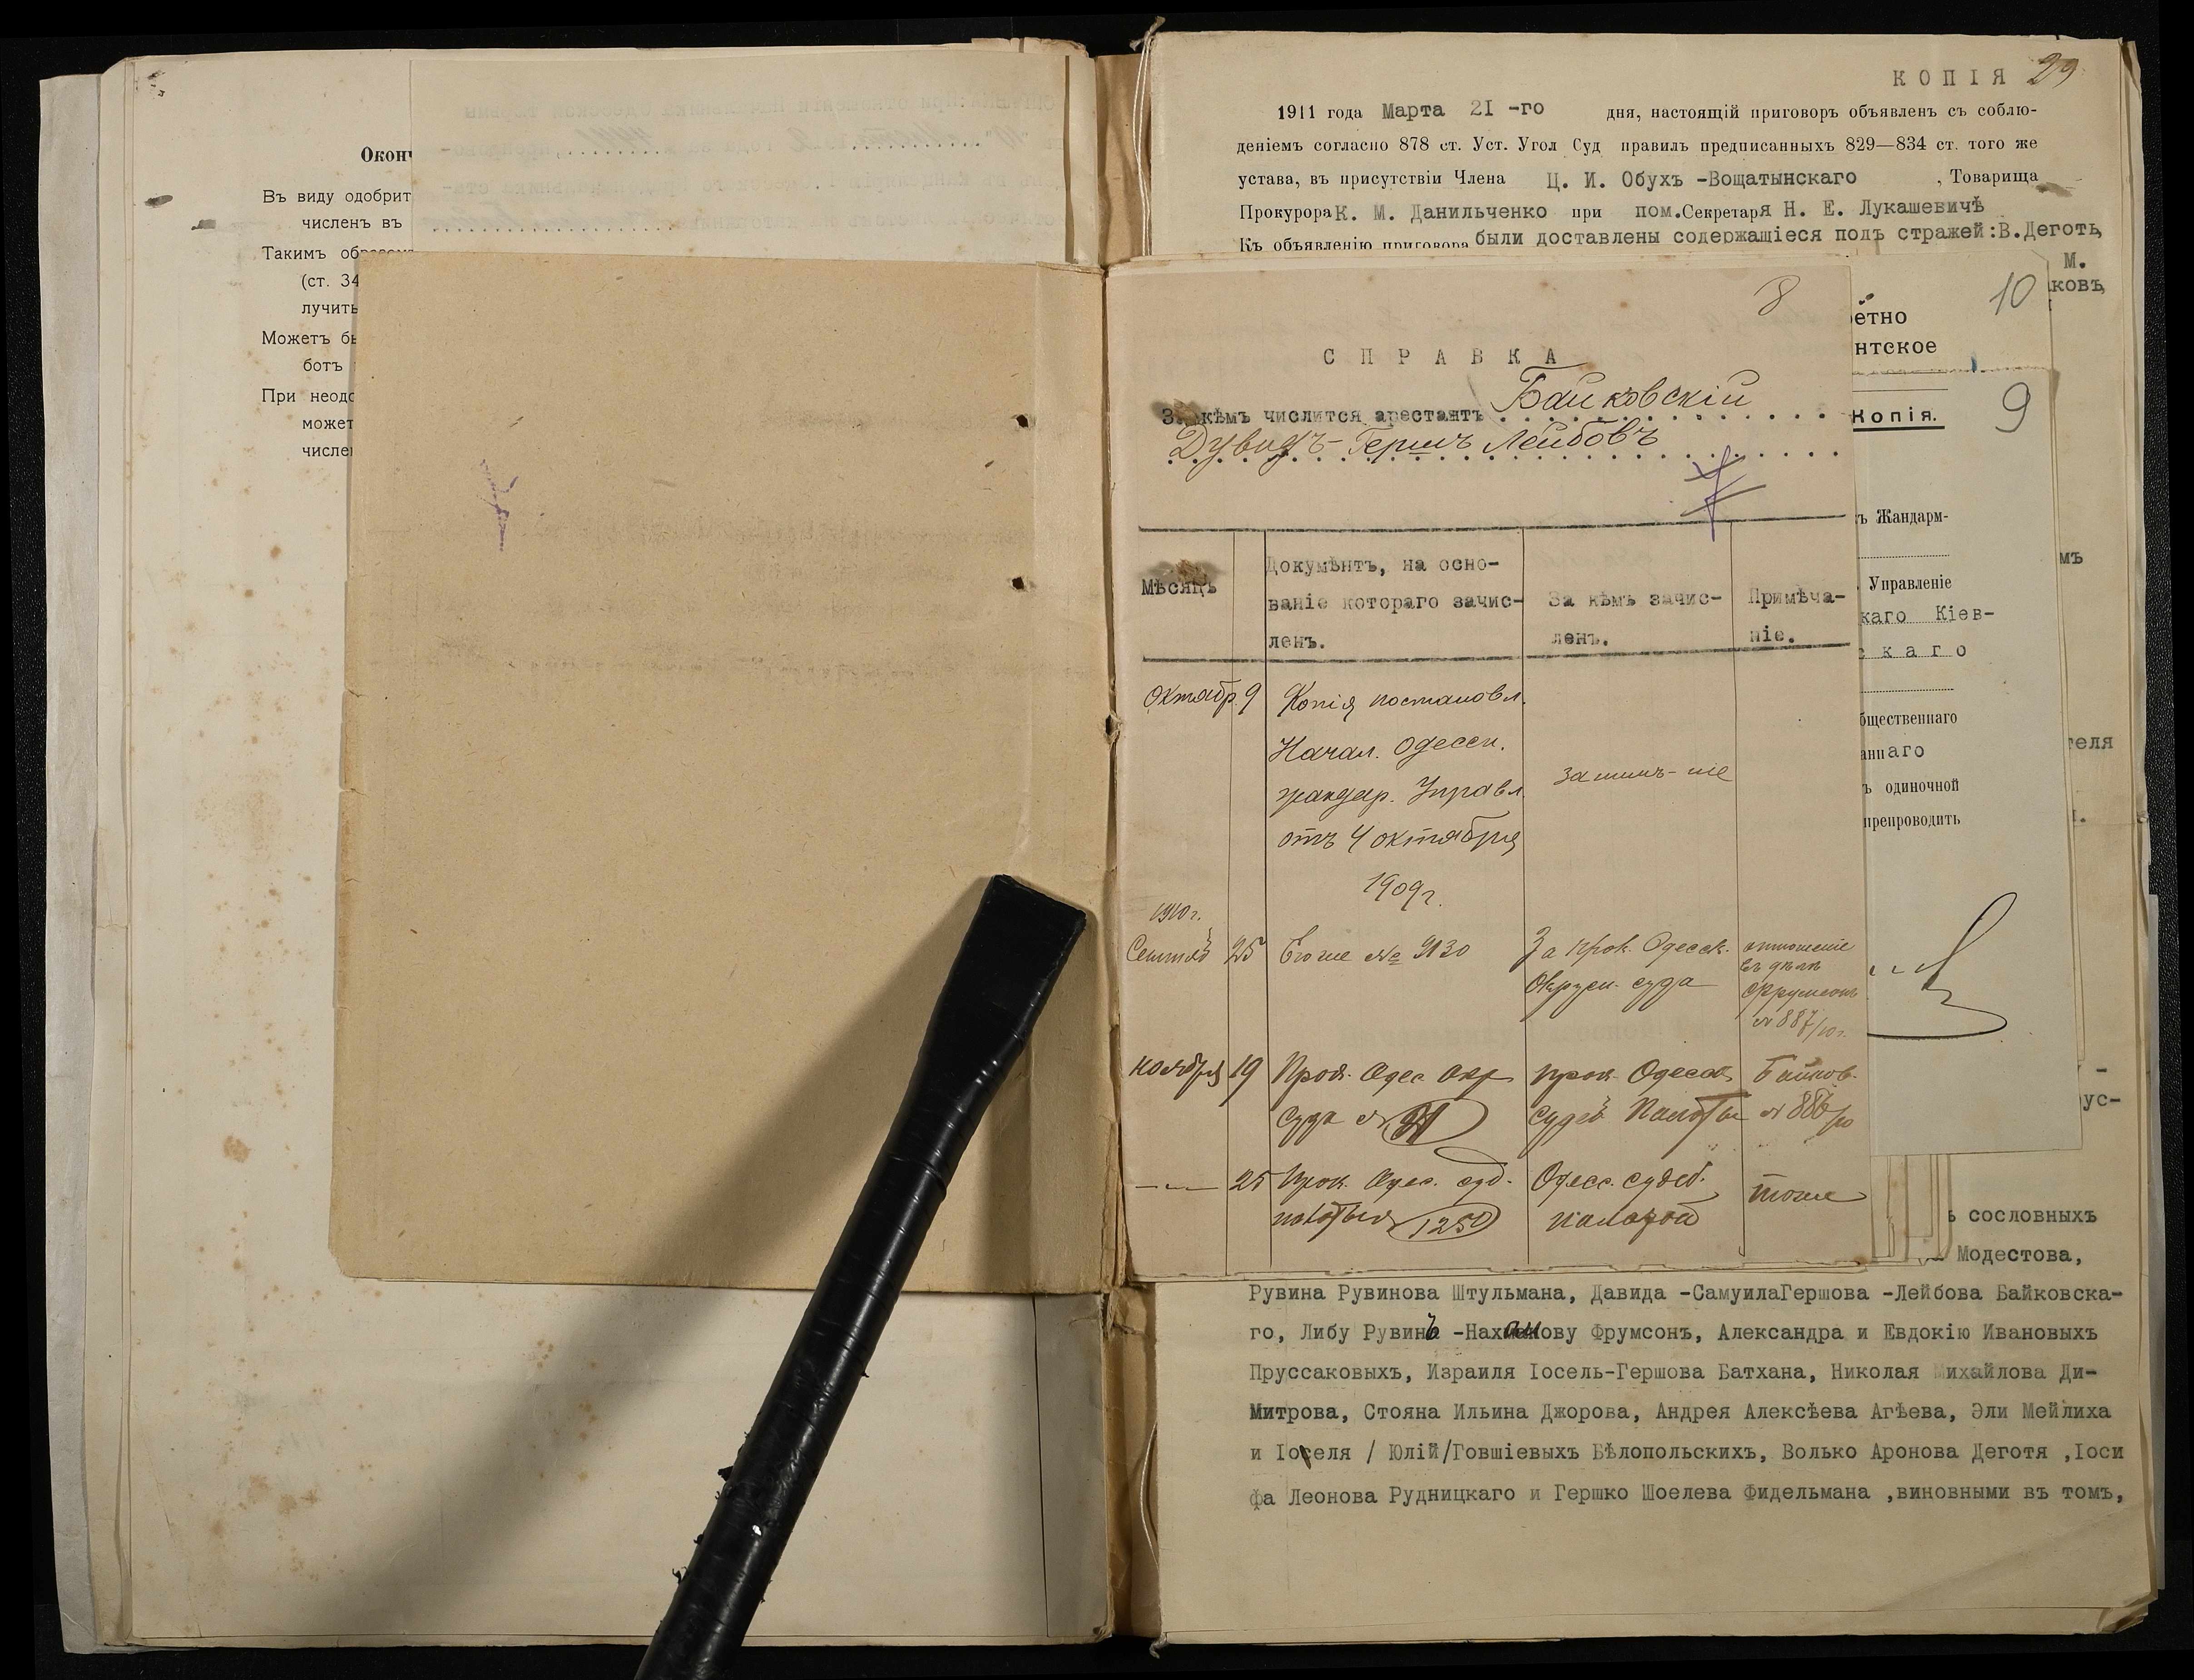 Въ виду одобрит
численъ въ
Такимъ
(ст. 34
лучить
Можетъ бы
ботъ
При неодо
может
числе
КОПІЯ 29
1911 года Марта 21 -го дня, настоящій приговоръ объявленъ съ соблю-
деніемъ согласно 878 ст. Уст. Угол Суд правилъ предписанныхъ 829—834 ст. того же
устава, въ присутствіи Члена Ц. И. Обухъ -Вощатынскаго , Товарища
Прокурора К. М. Данильченко при пом.Секретаря Н. Е. Лукашевичѣ
Къ объявленію приговора были доставлены содержащіеся подъ стражей:В.Деготь,
М.
ковъ,
10
ѣтно
нтское
Копія.
9
ъ Жандарм-
Управленіе
каго Кіев-
скаго
бщественнаго
аннаго
ъ одиночной
препроводить
мъ
теля
ус-
8
СПРАВКА
За кѣмъ числится арестантъ Байковскій
Дувидъ-Гершъ Лейбовъ
Мѣсяцъ
Документъ, на осно-
ваніе котораго зачис-
ленъ.
За кѣмъ зачис-
ленъ.
Примѣча-
ніе.
Октябр. 9 Копія постановл.
Начал. Одесск.
жандар. Управл.
отъ 4 октября
1909г.
1910г.
Сентяб 25 Его же № 9130 За прок. Одесск. отношеніе
Окружн. суда въ дѣлѣ
№ 887/10г.
ноября 19 Прок. Одес. Окр прок. Одесск. Байков.
Суда № 31 Судеб Палаты № 886/10
25 Прок. Одес. суд. Одесс. судеб. тоже
палаты № 1250 палатой
ь сословныхъ
Модестова,
Рувина Рувинова Штульмана, Давида -СамуилаГершова -Лейбова Байковска-
го, Либу Рувинъ -Нахманову Фрумсонъ, Александра и Евдокію Ивановыхъ
Пруссаковыхъ, Израиля Іосель-Гершова Батхана, Николая Михайлова Ди-
митрова, Стояна Ильина Джорова, Андрея Алексѣева Агѣева, Эли Мейлиха
и Іоселя / Юлій/Говшіевыхъ Бѣлопольскихъ, Волько Аронова Деготя ,Іоси
фа Леонова Рудницкаго и Гершко Шоелева Фидельмана ,виновными въ томъ,